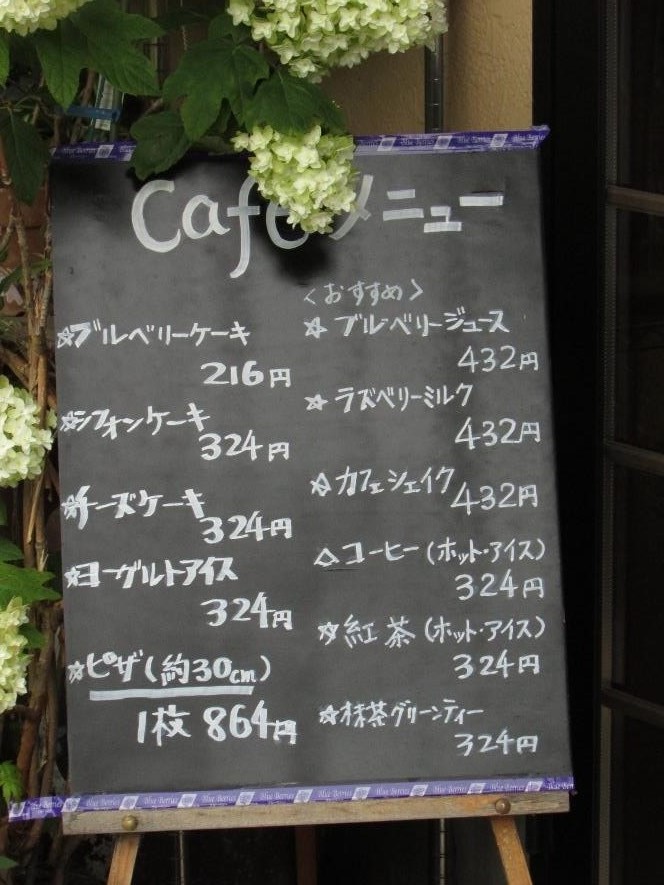 Café メニュー
☆ブルーベリーケーキ
216円
☆シフォンケーキ
324円
☆チーズケーキ
324円
☆ヨーグルトアイス
324円
☆ピザ(約30cm)
1枚 864円
<おすすめ>
☆ブルーベリージュース
432円
☆ラズベリーミルク
432円
☆カフェシェイク 432円
△コーヒー(ホット・アイス)
324円
☆紅茶(ホット・アイス)
324円
☆抹茶グリーンティー
324円